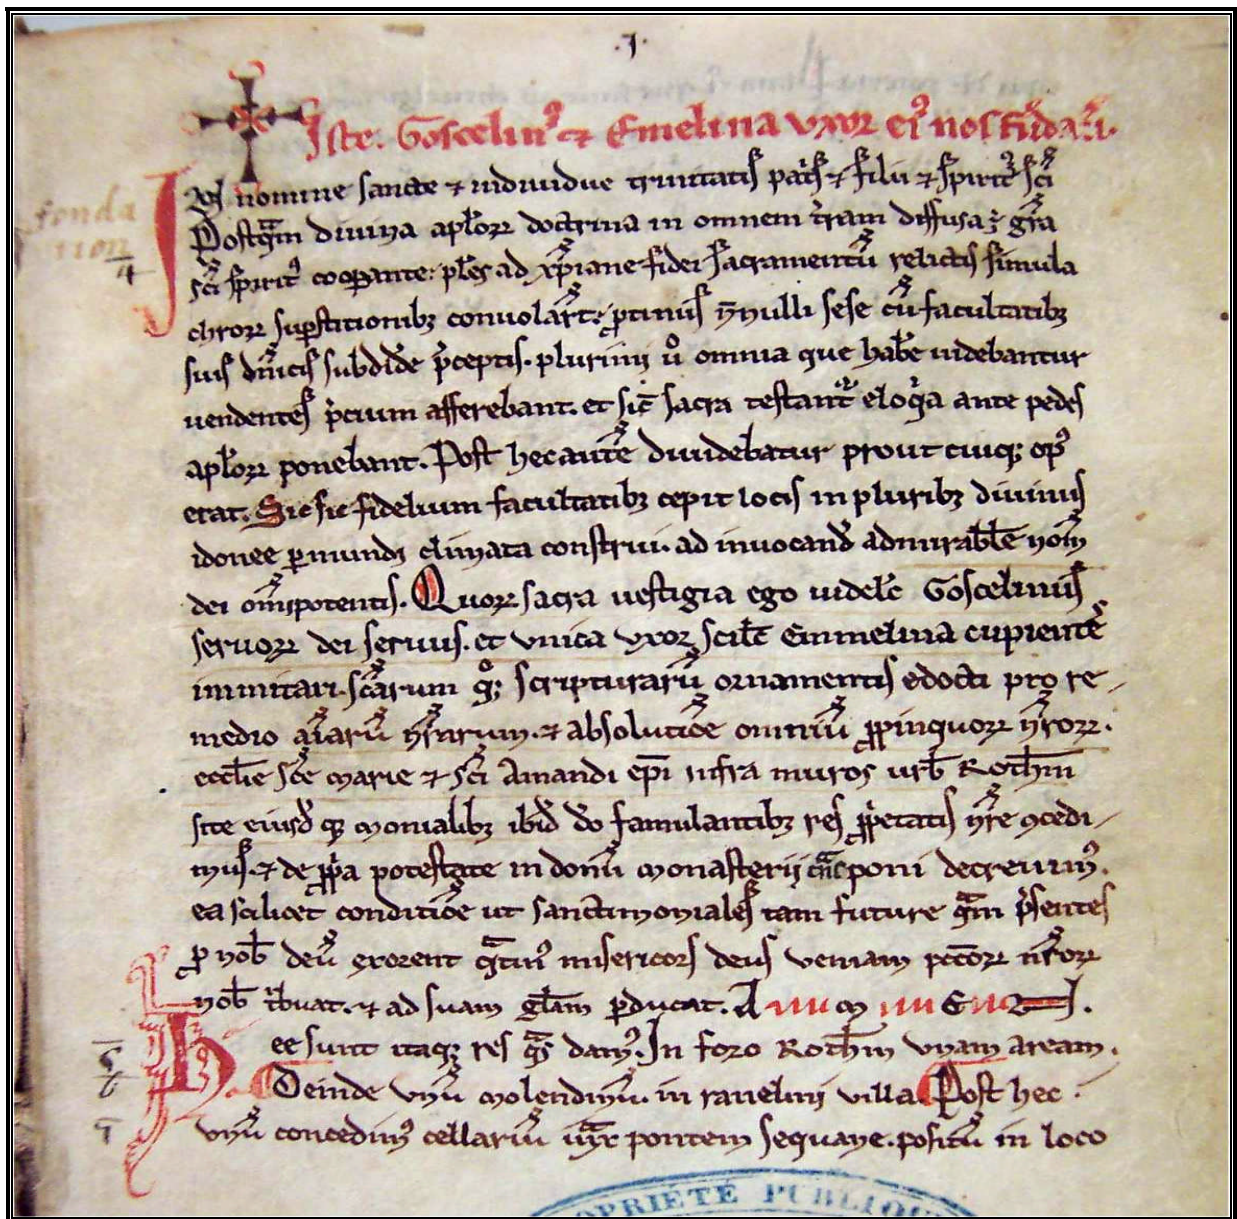 ·J·
Iste. Goscelin⁹ ⁊ Emelina uxor ei⁹ nos fūdar̄t.
IN nomine sancte ⁊ indiuidue trinitatis pat's ⁊ filii ⁊ spirit⁹ sc̄i
fonda
tion
Postq̄m diuina apl'oꝝ doctrina in omnem t'ram diffusa ē gr̄a
4
sc̄i spirit⁹ cooꝑante: pl'es ad xp̄iane fidei sacramentū relictis simula
chroꝝ suꝑstitionibꝫ conuolar̄t: ꝓtinus n̄nulli sese cū facultatibꝫ
suis dn̄icis subdid'e p'ceptis. plurimi u° omnia que hab'e uidebantur
uendentes p'cium afferebant. et sic̄ sacra testant̄ eloq'a ante pedes
apl'oꝝ ponebant. Post hec autē diuidebatur prout cuiq; op⁹
erat. Sic sic fidelium facultatibꝫ cepit locis in pluribꝫ diuinus
idonee ꝑ mundi climata construi. ad inuocand' admirabl'e nom̄
dei om̄ipotentis. Quoꝝ sacra uestigia ego uidelic̄ Goscelinus
seruoꝝ dei seruus. et unica uxor scil'c Emmelina cupientes
immitari. sc̄arum q°; scripturarū ornamentis edocti pro re-
medio aīarū nr̄arum. ⁊ absolutiōe omniū ꝓpinquoꝝ nr̄oꝝ.
eccl'ie sc̄e marie ⁊ sc̄i Amandi ep̄i infra muros urb̄ Roth̄m
site eiusd' qꝫ monialibꝫ ibid' d'o famulantibꝫ res ꝓp'etatis nr̄e ꝯcedi-
mus. ⁊ de ꝓp'a potestate in domū monasterij t'nsponi decreuim⁹.
ea scilicet conditiōe ut sanctimoniales tam future q̄m p'sentes
ꝓ nob̄ deū exorent q̄tin⁹ misericors deus ueniam pcc̄oꝝ nr̄oꝝ
nob̄ t'buat. ⁊ ad suam gl'am ꝑducat. A m E N.
Hee sunt itaq; res q̄s dam⁹. In foro Roth̄m unam aream.
Deinde unū molendinū. in rauelini uilla. Post hec
unū concedim⁹ cellariū iux̄ pontem sequane. positū in loco
PROPRIÉTÉ PUBLIQUE